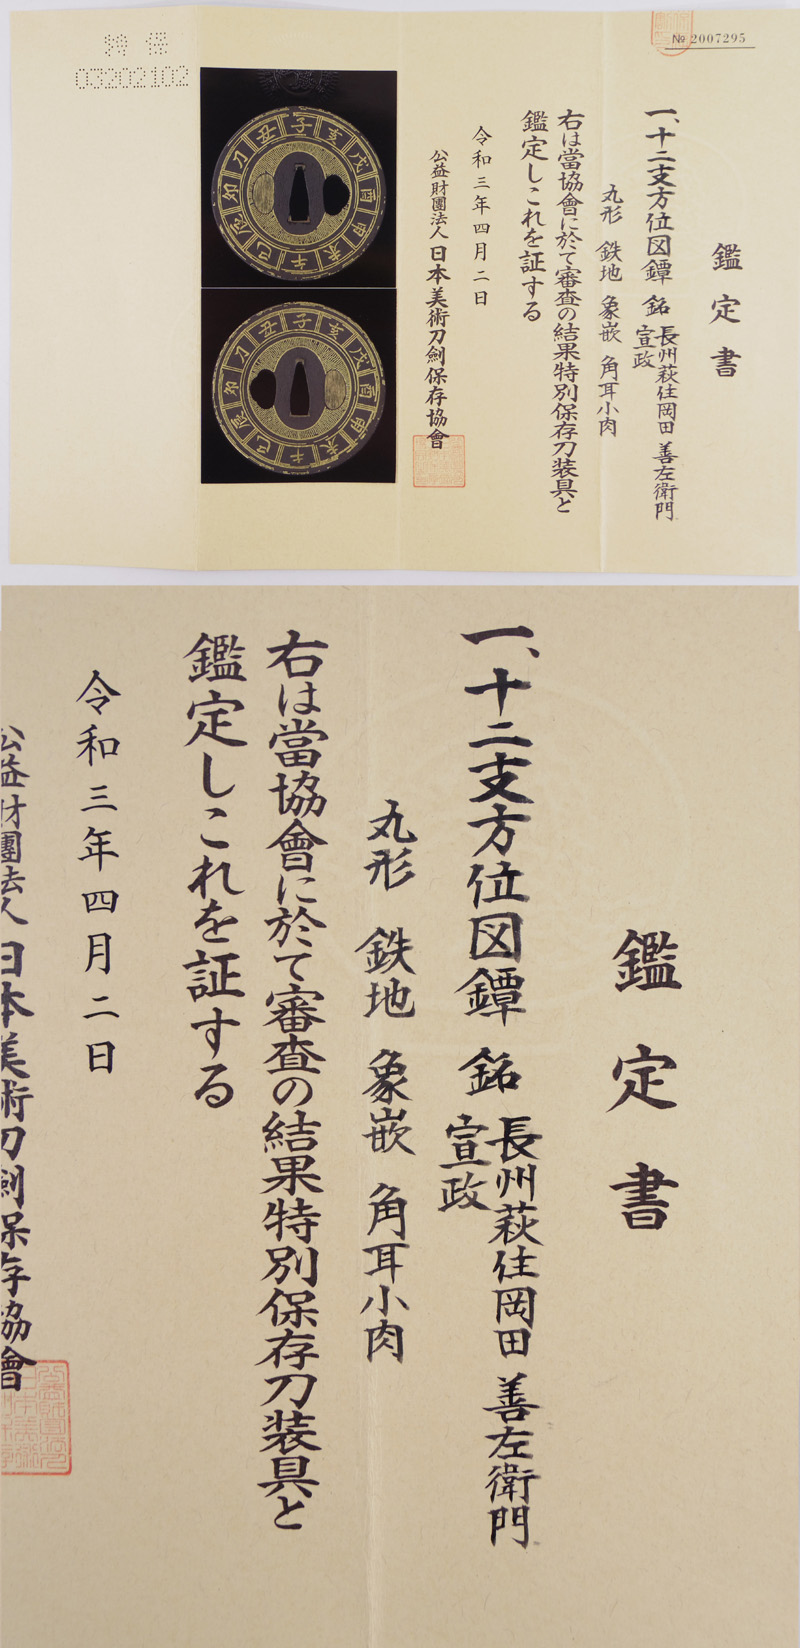 № 2007295
鑑定書
一、十二支方位図鐔 銘 長州萩住岡田善左衛門
宣政
丸形 鉄地 象嵌 角耳小肉
右は當協會に於て審査の結果特別保存刀装具と
鑑定しこれを証する
令和三年四月二日
公益財團法人 日本美術刀劍保存協會
特保
03202102
子
亥
戌
酉
申
未
午
巳
辰
卯
丑
子
亥
戌
酉
申
未
午
巳
辰
卯
丑
鑑定書
一、十二支方位図鐔 銘 長州萩住岡田善左衛門
宣政
丸形 鉄地 象嵌 角耳小肉
右は當協會に於て審査の結果特別保存刀装具と
鑑定しこれを証する
令和三年四月二日
公益財團法人 日本美術刀劍保存協會